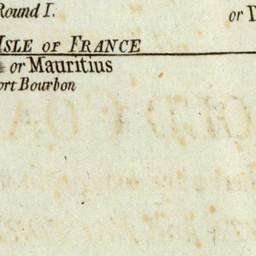 Round I. or
ISLE OF FRANCE
or Mauritius
ort Bourbon